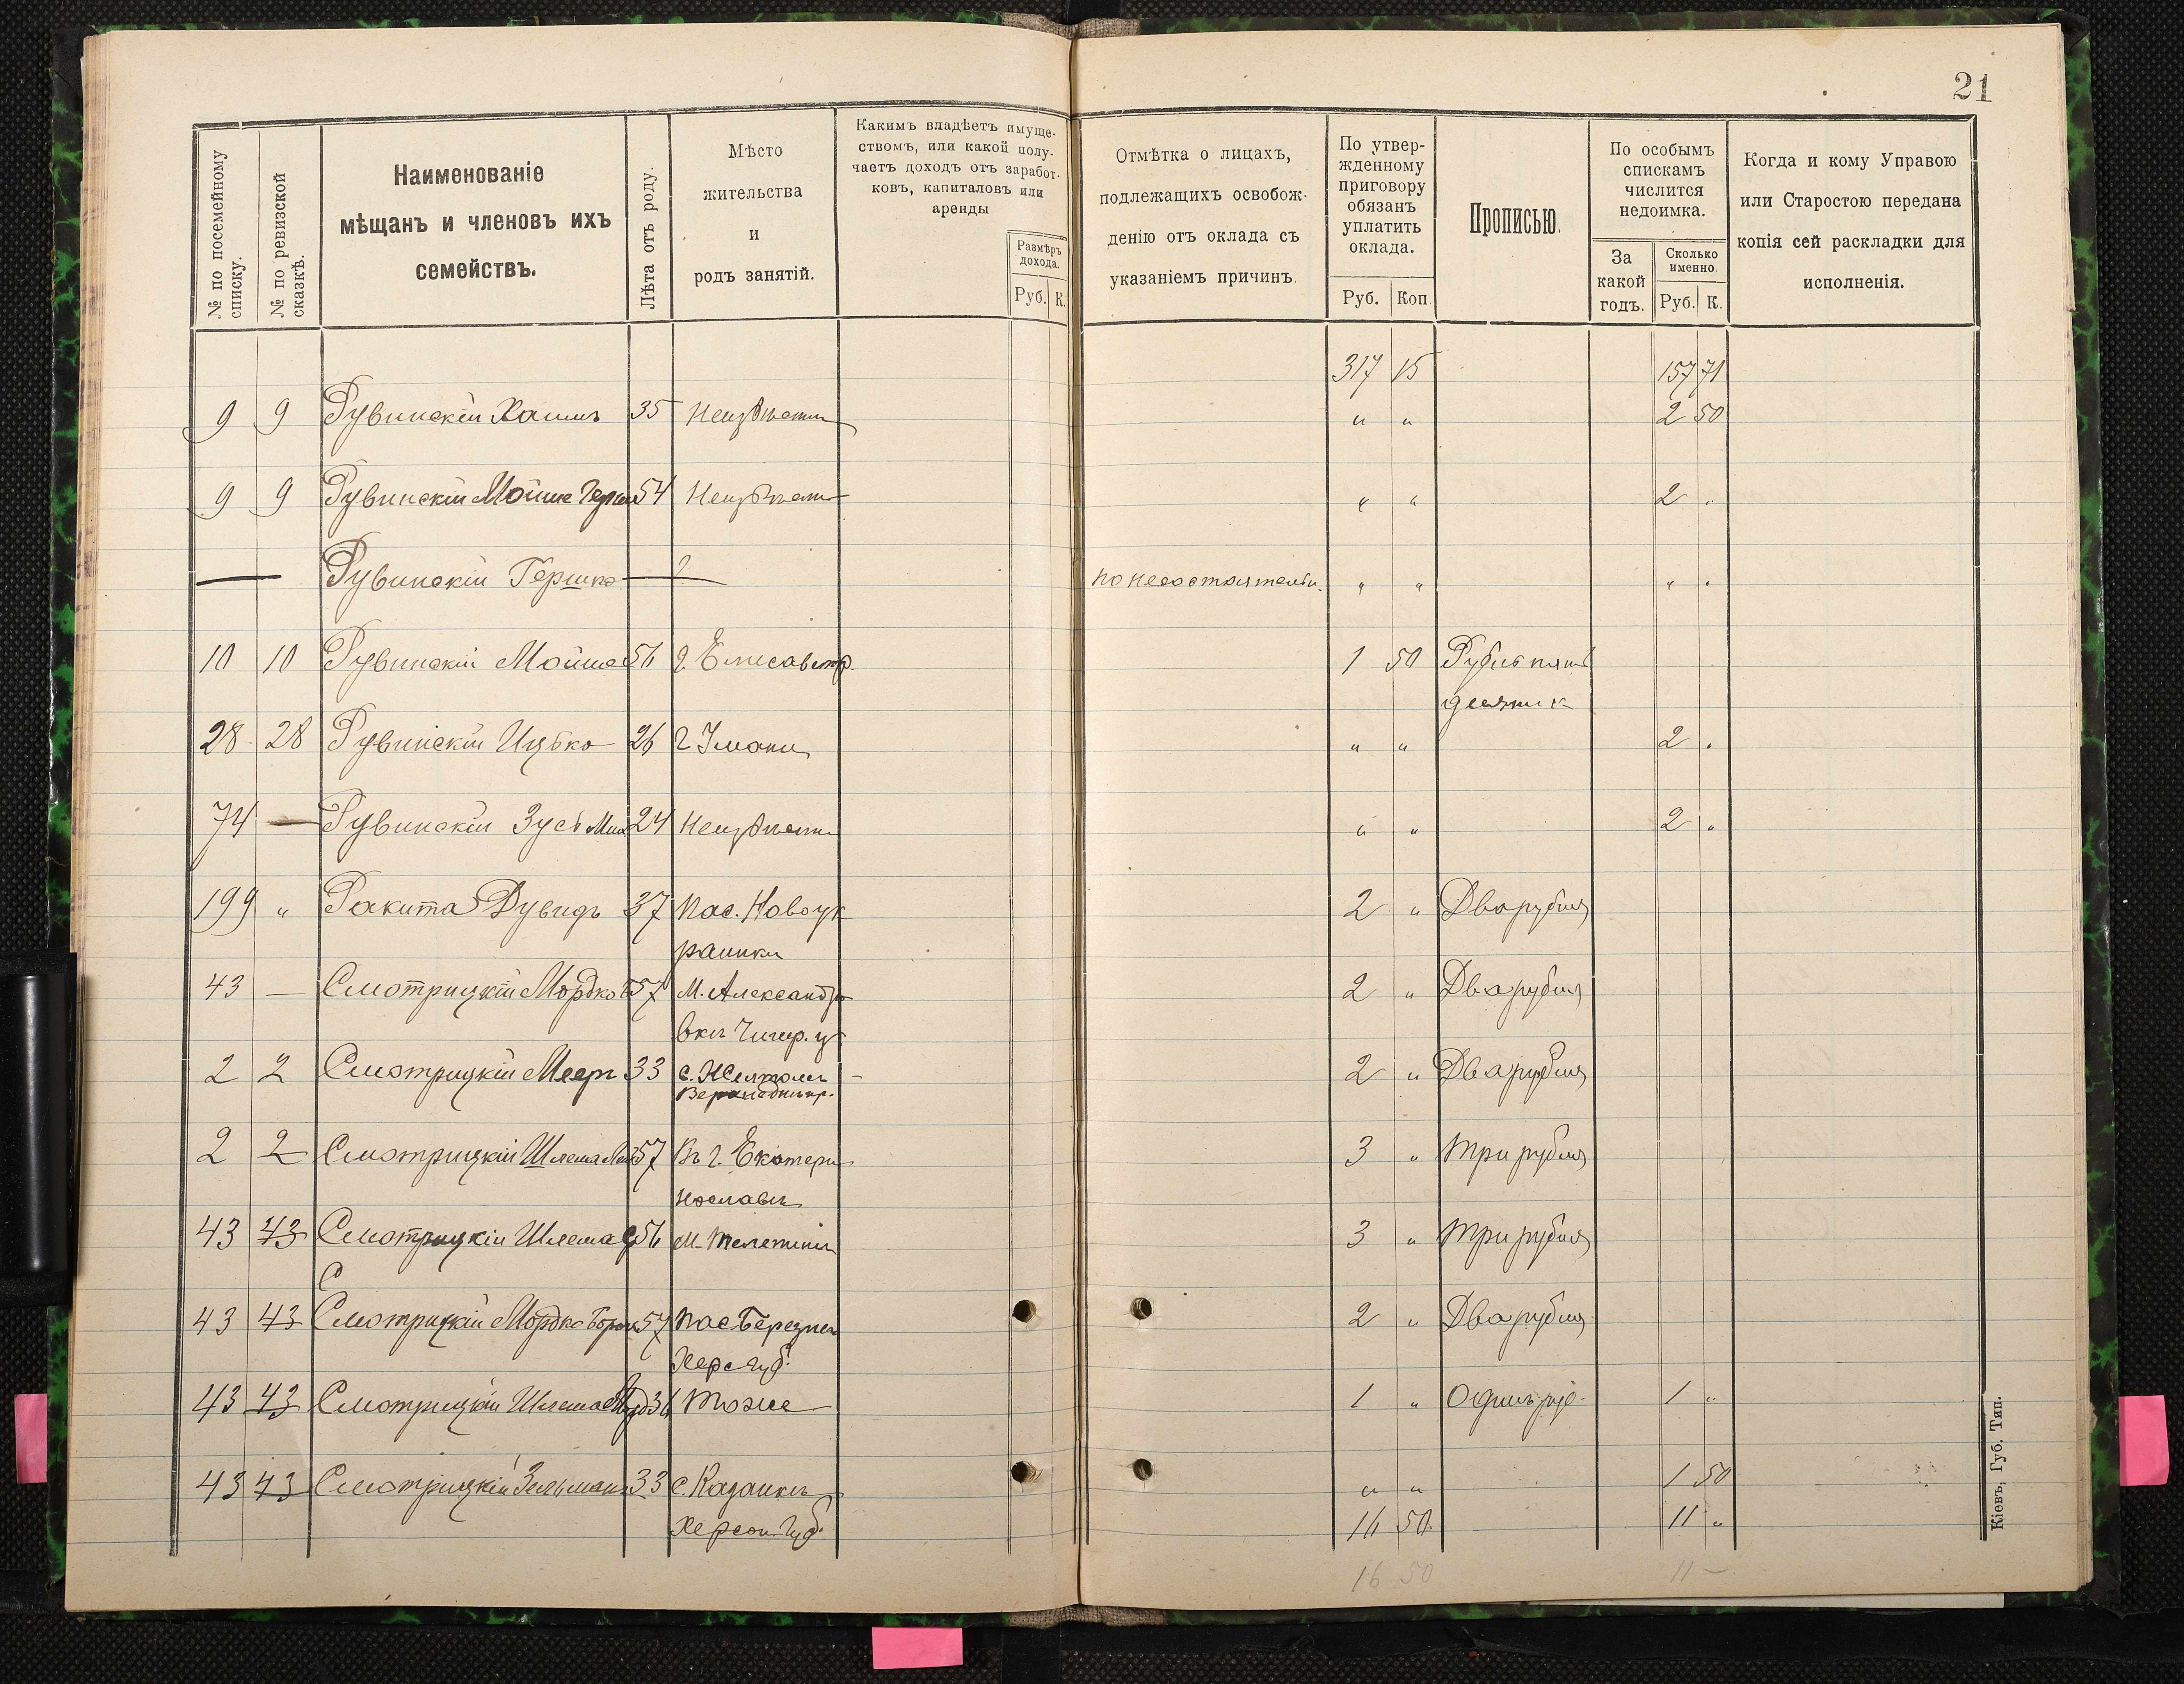 21
№ по посемейному списку.
№ по ревизской сказкѣ.
Наименованіе
мѣщанъ и членовъ ихъ
семействъ.
Лѣта отъ роду.
Мѣсто
жительства
и
родъ занятій.
Какимъ владѣетъ имуще-
ствомъ, или какой полу-
чаетъ доходъ отъ заработ-
ковъ, капиталовъ или
аренды
Размѣръ
дохода.
Руб. К.
Отмѣтка о лицахъ,
подлежащихъ освобож-
денію отъ оклада съ
указаніемъ причинъ.
По утвер-
жденному
приговору
обязанъ
уплатить
оклада.
Руб. Коп.
Прописью.
По особымъ
спискамъ
числится
недоимка.
За
какой
годъ.
Сколько
именно.
Руб. К.
Когда и кому Управою
или Старостою передана
копія сей раскладки для
исполненія.
317 15 157 71
9 9 Рувинскій Хаимъ 35 Неизвѣстн " " 2 50
9 9 Рувинскій Мойше 54 Неизвѣстн " " 2 "
— Рувинскій Гершко — ? — по несостоятельн. " " " "
10 10 Рувинскій Мойше 56 г. Елисаветр. 1 50 Рубль пять
десять к
28 28 Рувинскій Ицько 26 г Умани " " 2 "
74 — Рувинскій Зусь 24 Неизвѣстн " " 2 "
199 " Ракита Дувидъ 37 Пос. Новоук 2 " Два рубля
раинки
43 — Смотрицкій Мордко 57 М. Александро 2 " Два рубля
вкѣ Чигир. у
2 2 Смотрицкій Меер 33 с. Желтомъ 2 " Два рубля
Верхнеднѣпр.
2 2 Смотрицкій Шлема 57 Въ г. Екатери 3 " Три рубля
нославѣ
43 43 Смотрицкій Шлема 56 М. Телепинѣ 3 " Три рубля
С
43 43 Смотрицкій Мордко 57 Пос Березнег 2 " Два рубля
Херс губ.
43 43 Смотрицкій Шлема 36 Тоже 1 " Одинъ руб. 1 "
43 43 Смотрицкій Зельманъ 33 с. Казанкѣ " " 1 50
Херсон губ. 16 50 11 "
16 50 11 –
Кіевъ, Губ. Тип.